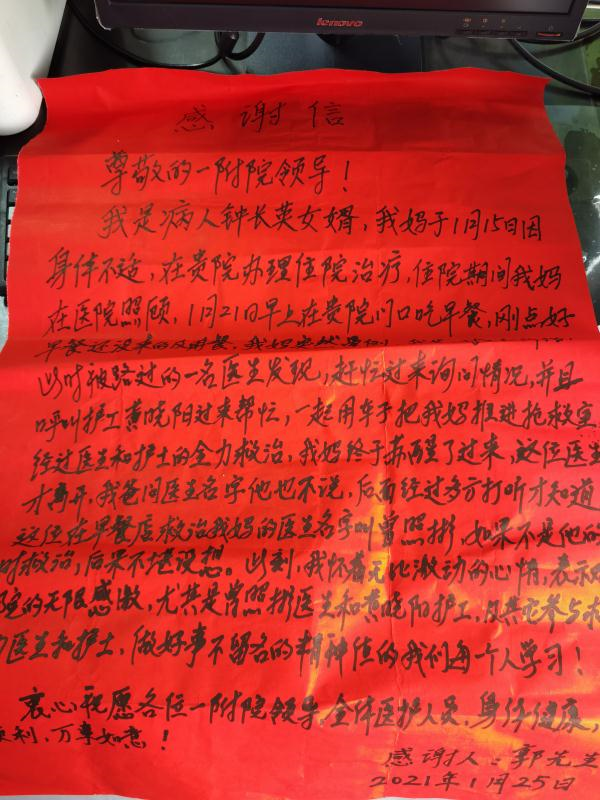 lenovo
感谢信
尊敬的一附院领导！
我是病人钟长英女婿，我妈于1月15日因
身体不适，在贵院办理住院治疗，住院期间我妈
在医院照顾，1月21日早上在贵院门口吃早餐，刚点好
早餐还没来的及用餐，我妈突然晕倒
此时被路过的一名医生发现，赶忙过来询问情况，并且
呼叫护工黄晓阳过来帮忙，一起用车子把我妈推进抢救室
经过医生和护士的全力救治，我妈终于苏醒了过来，这位医生
才离开，我爸问医生名字他也不说，后面经过多方打听才知道
这位在早餐店救治我妈的医生名字叫曾照彬，如果不是他的
时救治，后果不堪设想。此刻，我怀着无比激动的心情，表示对
院的无限感激，尤其是曾照彬医生和黄晓阳护工，及其它参与抢
医生和护士，做好事不留名的精神值的我们每一个人学习！
衷心祝愿各位一附院领导，全体医护人员，身体健康，
顺利，万事如意！
感谢人：郭先生
2021年1月25日